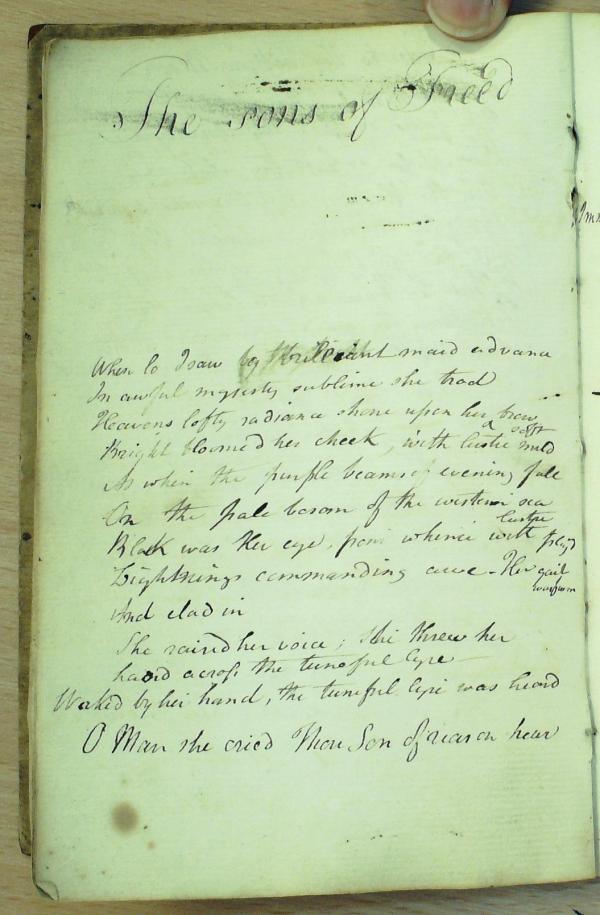 The sons of Freed
When lo I saw by brilliant maid advance
In awful mysisty sublime she trod
Heavens lofty radiance shone upon her brow
Bright bloomed her cheek, with a soft lustre mild
As when the purple beams of evening fall
On the pale bosom of the western sea
lustre
Black was Her eye, from whence with
Lightnings commanding awe - Her gait
And clad in
She raised her voice; She threw her
hand across the tuneful lyre
Waked by her hand, the tuneful lyre was heard
O Man she cried Thou Son of reason hear